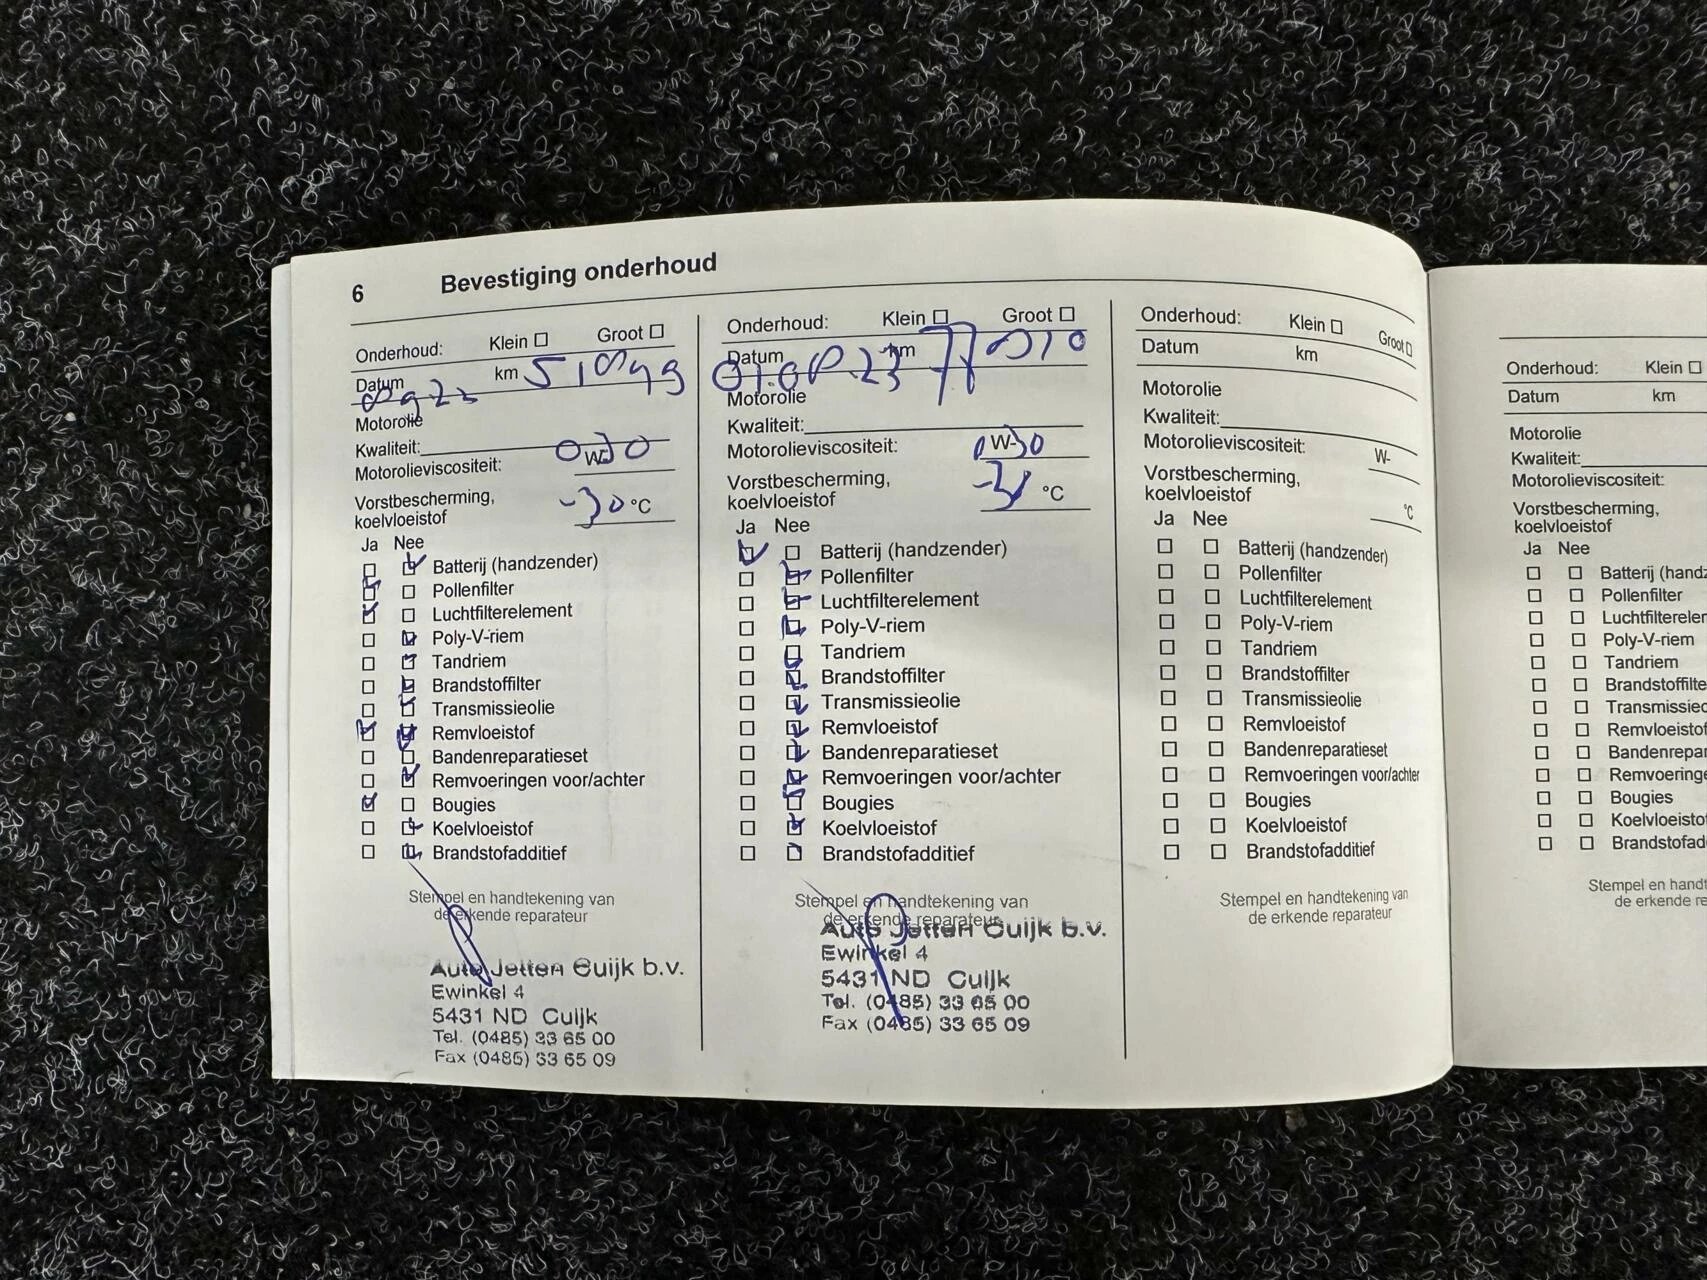 6 Bevestiging onderhoud
Onderhoud: Klein Groot
Datum km
Motorolie
Kwaliteit:
Motorolieviscositeit: 0 W-30
Vorstbescherming,
koelvloeistof -30 °C
Ja Nee
Batterij (handzender)
Pollenfilter
Luchtfilterelement
Poly-V-riem
Tandriem
Brandstoffilter
Transmissieolie
Remvloeistof
Bandenreparatieset
Remvoeringen voor/achter
Bougies
Koelvloeistof
Brandstofadditief
Stempel en handtekening van
de erkende reparateur
Auto Jetten Cuijk b.v.
Ewinkel 4
5431 ND Cuijk
Tel. (0485) 33 65 00
Fax (0485) 33 65 09
Onderhoud: Klein Groot
Datum km
Motorolie
Kwaliteit:
Motorolieviscositeit: 0 W-30
Vorstbescherming,
koelvloeistof °C
Ja Nee
Batterij (handzender)
Pollenfilter
Luchtfilterelement
Poly-V-riem
Tandriem
Brandstoffilter
Transmissieolie
Remvloeistof
Bandenreparatieset
Remvoeringen voor/achter
Bougies
Koelvloeistof
Brandstofadditief
Stempel en handtekening van
de erkende reparateur
Auto Jetten Cuijk b.v.
Ewinkel 4
5431 ND Cuijk
Tel. (0485) 33 65 00
Fax (0485) 33 65 09
Onderhoud: Klein Groot
Datum km
Motorolie
Kwaliteit:
Motorolieviscositeit: W-
Vorstbescherming,
koelvloeistof °C
Ja Nee
Batterij (handzender)
Pollenfilter
Luchtfilterelement
Poly-V-riem
Tandriem
Brandstoffilter
Transmissieolie
Remvloeistof
Bandenreparatieset
Remvoeringen voor/achter
Bougies
Koelvloeistof
Brandstofadditief
Stempel en handtekening van
de erkende reparateur
Onderhoud: Klein
Datum km
Motorolie
Kwaliteit:
Motorolieviscositeit:
Vorstbescherming,
koelvloeistof
Ja Nee
Batterij (handz
Pollenfilter
Luchtfilterelem
Poly-V-riem
Tandriem
Brandstoffilte
Transmissieo
Remvloeistof
Bandenrepar
Remvoeringe
Bougies
Koelvloeisto
Brandstofad
Stempel en handt
de erkende re